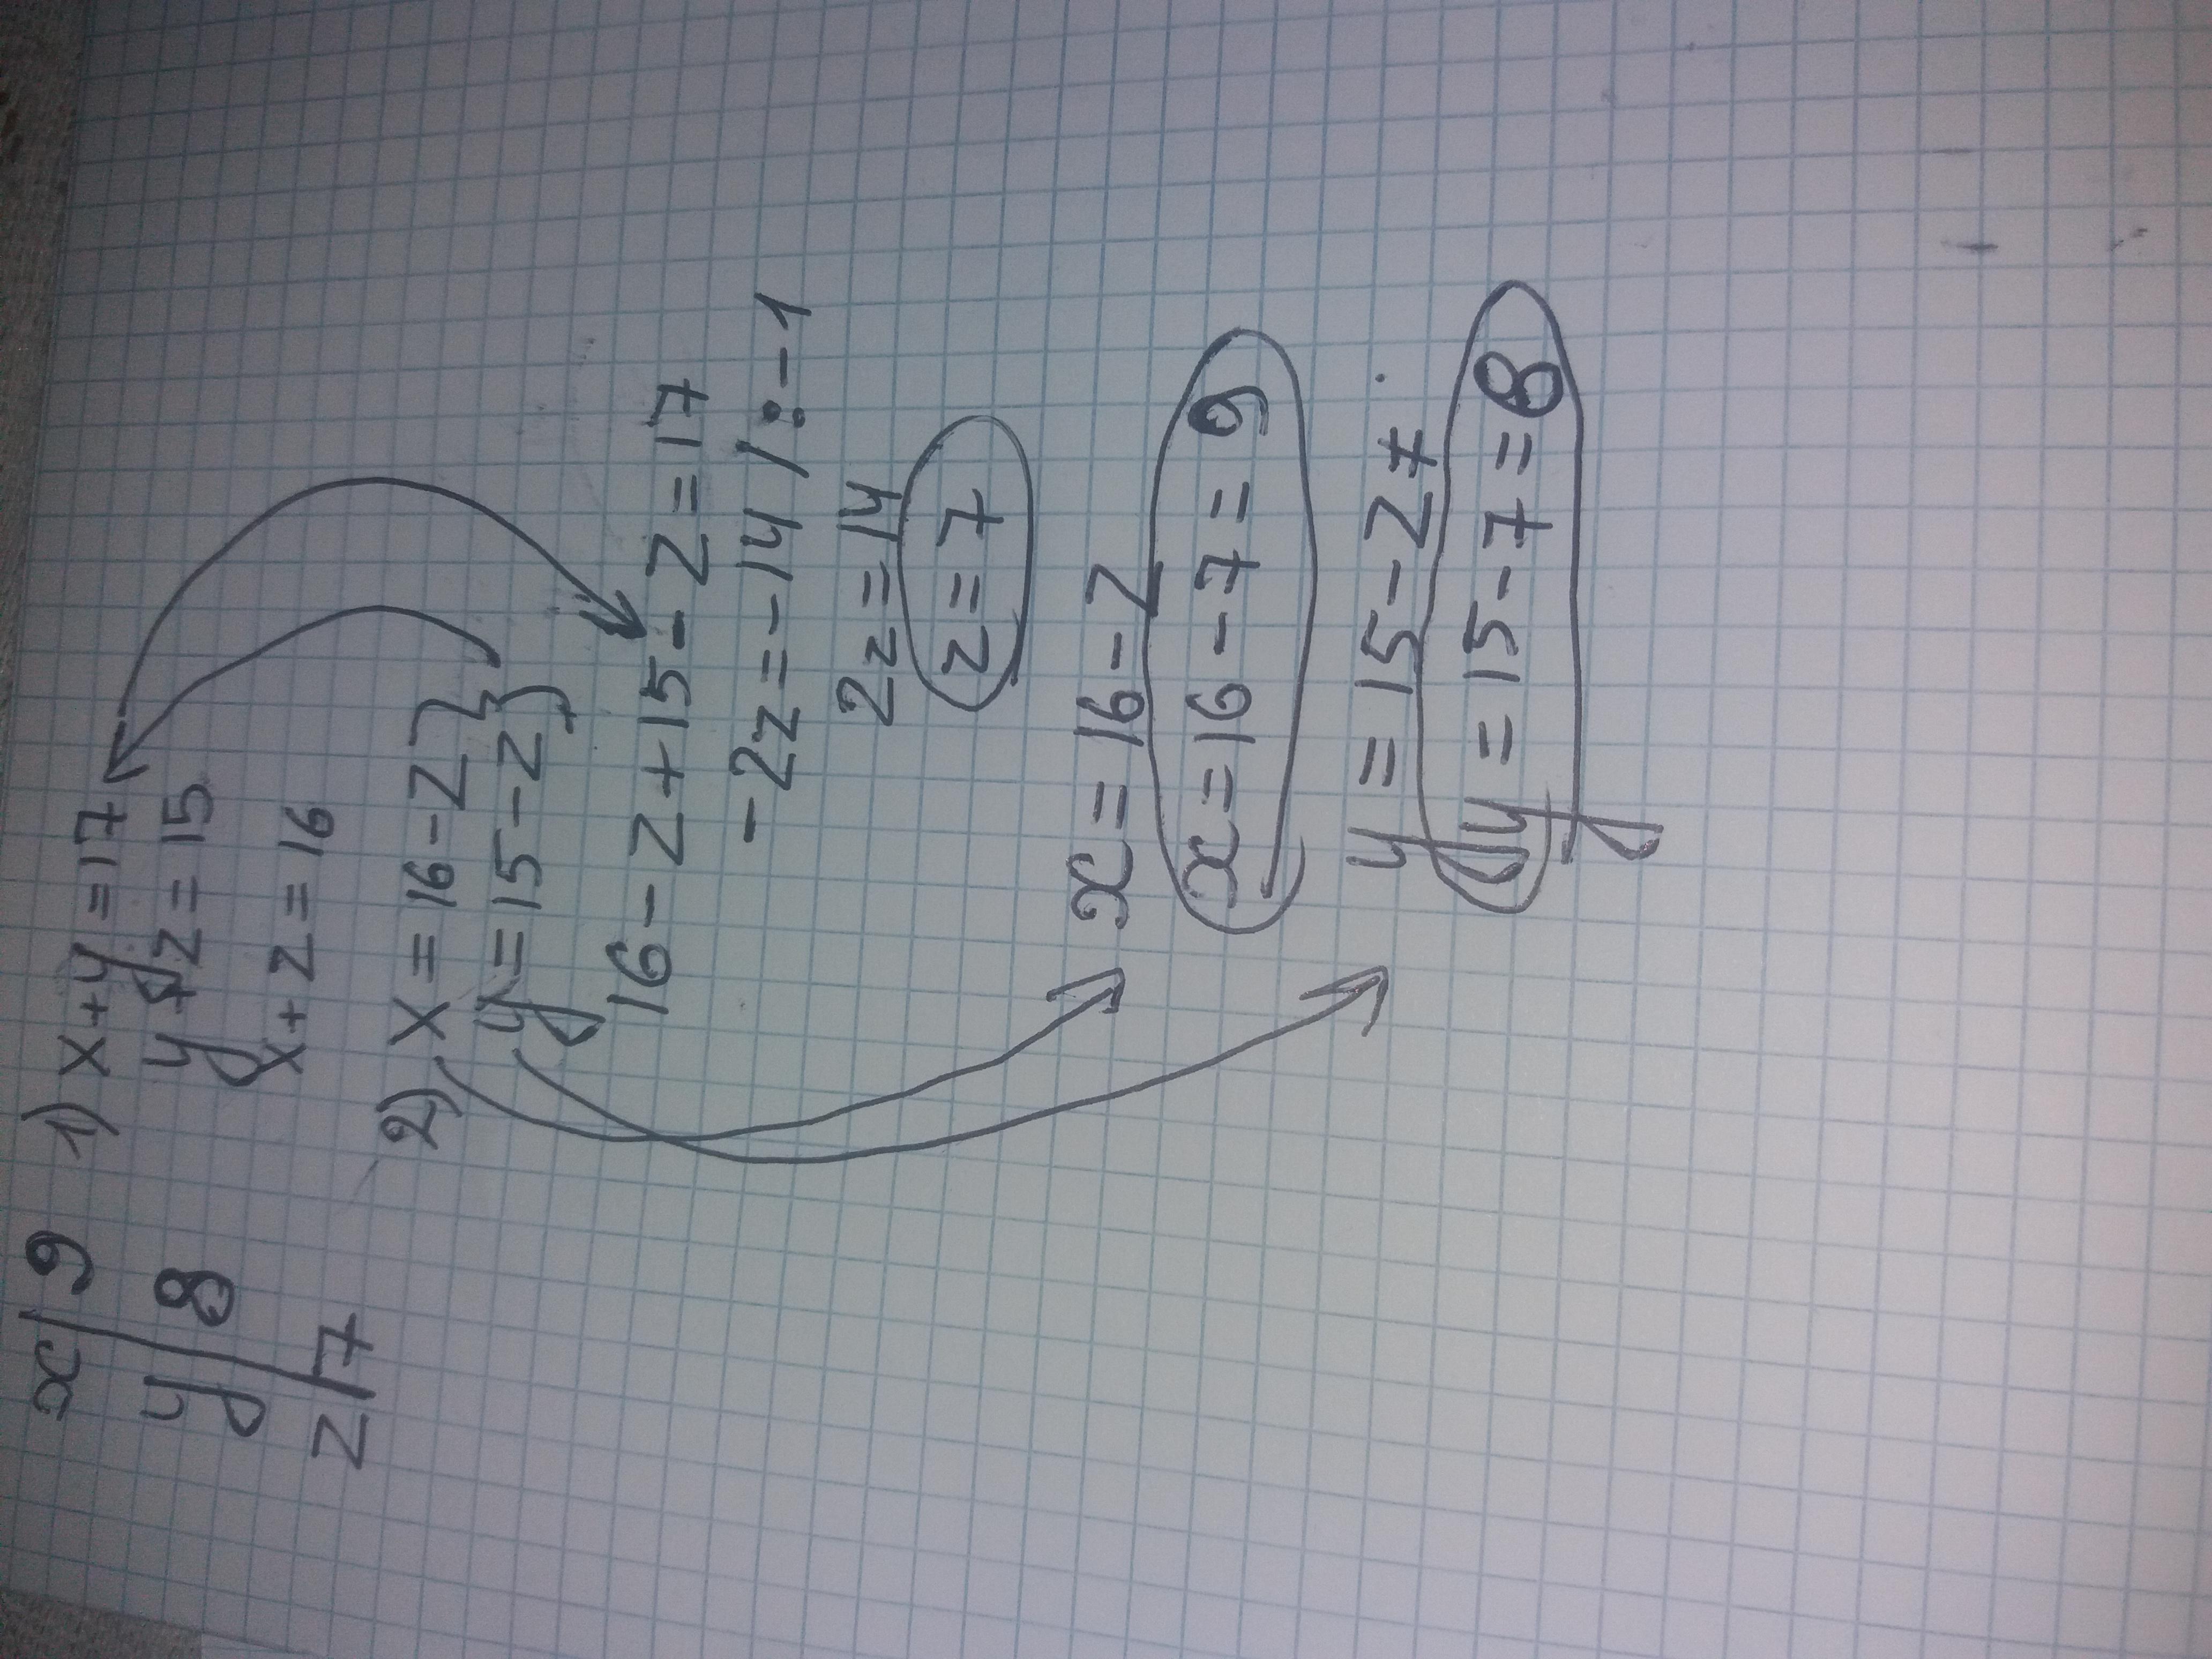 x | 9
y | 8
z | 7
1) x+y=17
y+z=15
x+z=16
2) x=16-z}
y=15-z}
16-z+15-z=17
-2z=-14/:-1
2z=14
z=7
x=16-z
x=16-7=9
y=15-z
y=15-7=8